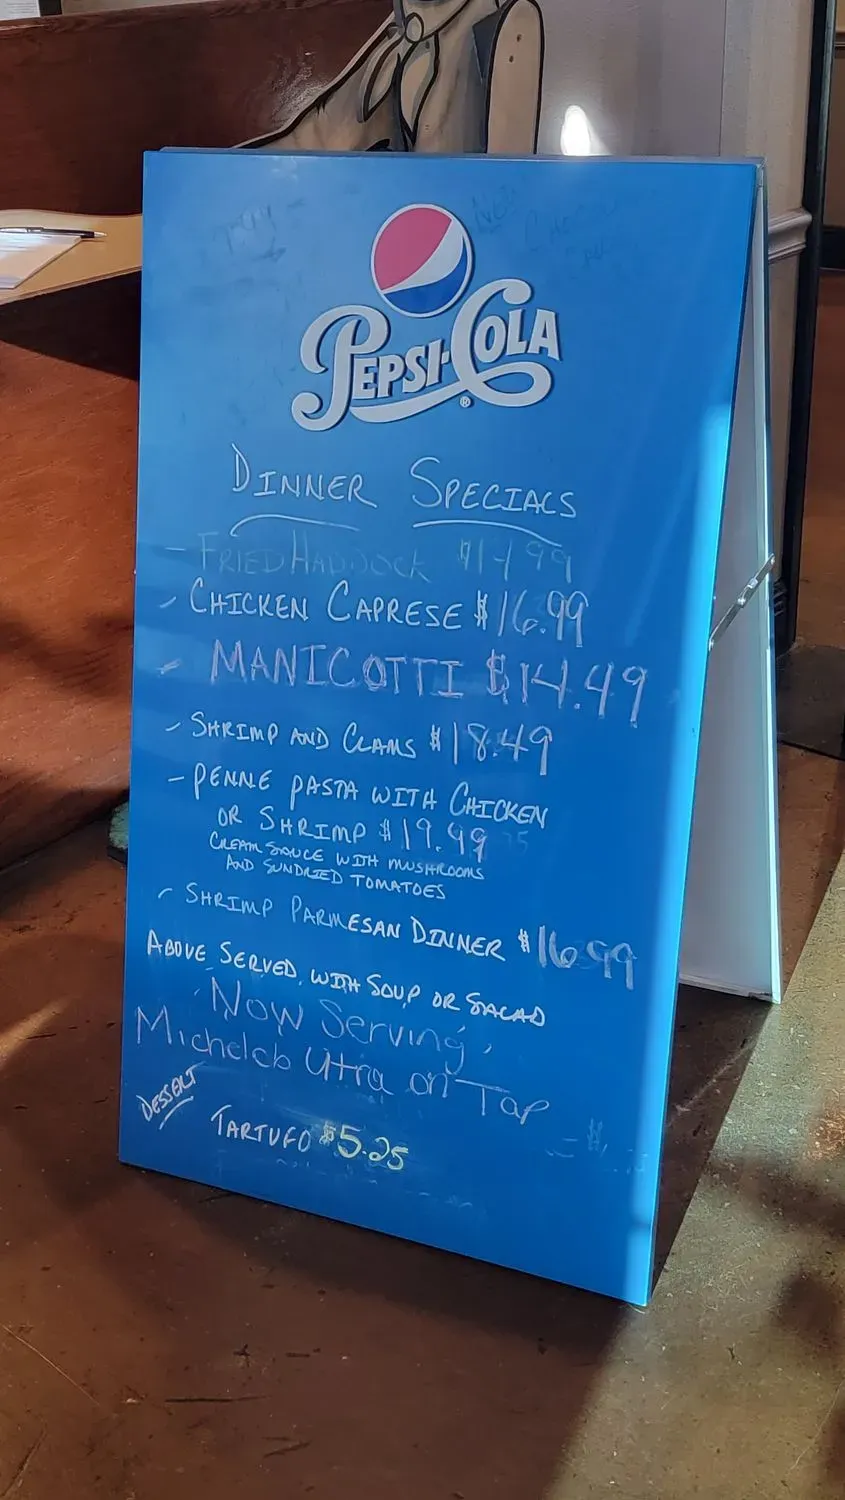 PEPSI-COLA
®
DINNER SPECIALS
- FRIED HADDOCK $14.99
- CHICKEN CAPRESE $16.99
- MANICOTTI $14.49
- SHRIMP AND CLAMS $18.49
- PENNE PASTA WITH CHICKEN
OR SHRIMP $19.99
CREAM SAUCE WITH MUSHROOMS
AND SUNDRIED TOMATOES
- SHRIMP PARMESAN DINNER $16.99
ABOVE SERVED WITH SOUP OR SALAD
Now Serving
Micheleb Ultra on Tap
DESSERT
TARTUFO $5.25